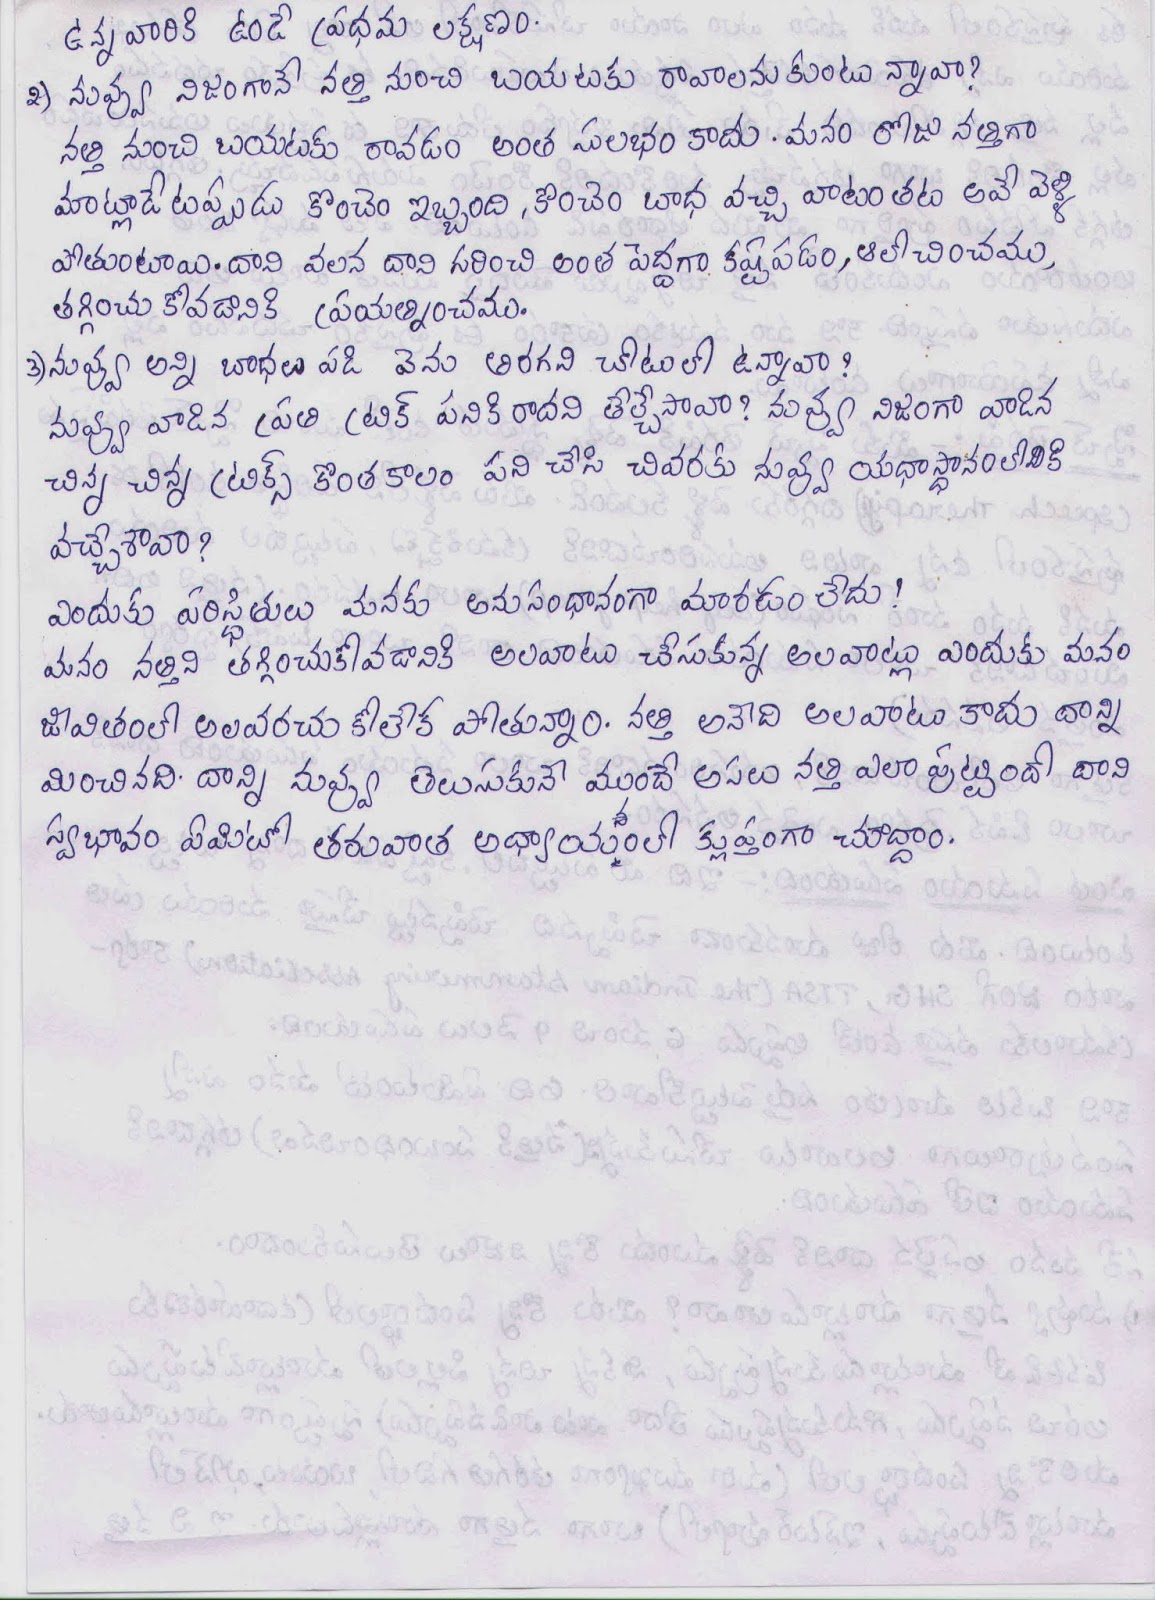 ఉన్న వారికి ఉండే ప్రధమ లక్షణం.
2) నువ్వు నిజంగానే నత్తి నుంచి బయటకు రావాలనుకుంటున్నావా?
నత్తి నుంచి బయటకు రావడం అంత సులభం కాదు. మనం రోజు నత్తిగా
మాట్లాడేటప్పుడు కొంచెం ఇబ్బంది, కొంచెం బాధ వచ్చి వాటంతట అవే వెళ్ళి
పోతుంటాయి. దాని వలన దాని గురించి అంత పెద్దగా కష్టపడం, ఆలోచించము,
తగ్గించు కోవడానికి ప్రయత్నించము.
3) నువ్వు అన్ని బాధలు పడి వెను తిరగని చోటులో ఉన్నావా?
నువ్వు వాడిన ప్రతి ట్రిక్ పనికిరాదని తేల్చేసావా? నువ్వు నిజంగా వాడిన
చిన్న చిన్న ట్రిక్స్ కొంతకాలం పని చేసి చివరకు నువ్వు యధాస్థానంలోనికి
వచ్చేశావా?
ఎందుకు పరిస్థితులు మనకు అనుసంధానంగా మారడం లేదు!
మనం నత్తిని తగ్గించుకోవడానికి అలవాటు చేసుకున్న అలవాట్లు ఎందుకు మనం
జీవితంలో అలవరచు కోలేక పోతున్నాం. నత్తి అనేది అలవాటు కాదు దాన్ని
మించినది. దాన్ని నువ్వు తెలుసుకునే ముందే అసలు నత్తి ఎలా పుట్టిందో దాని
స్వభావం ఏమిటో తరువాత అధ్యాయనంలో క్లుప్తంగా చూద్దాం.